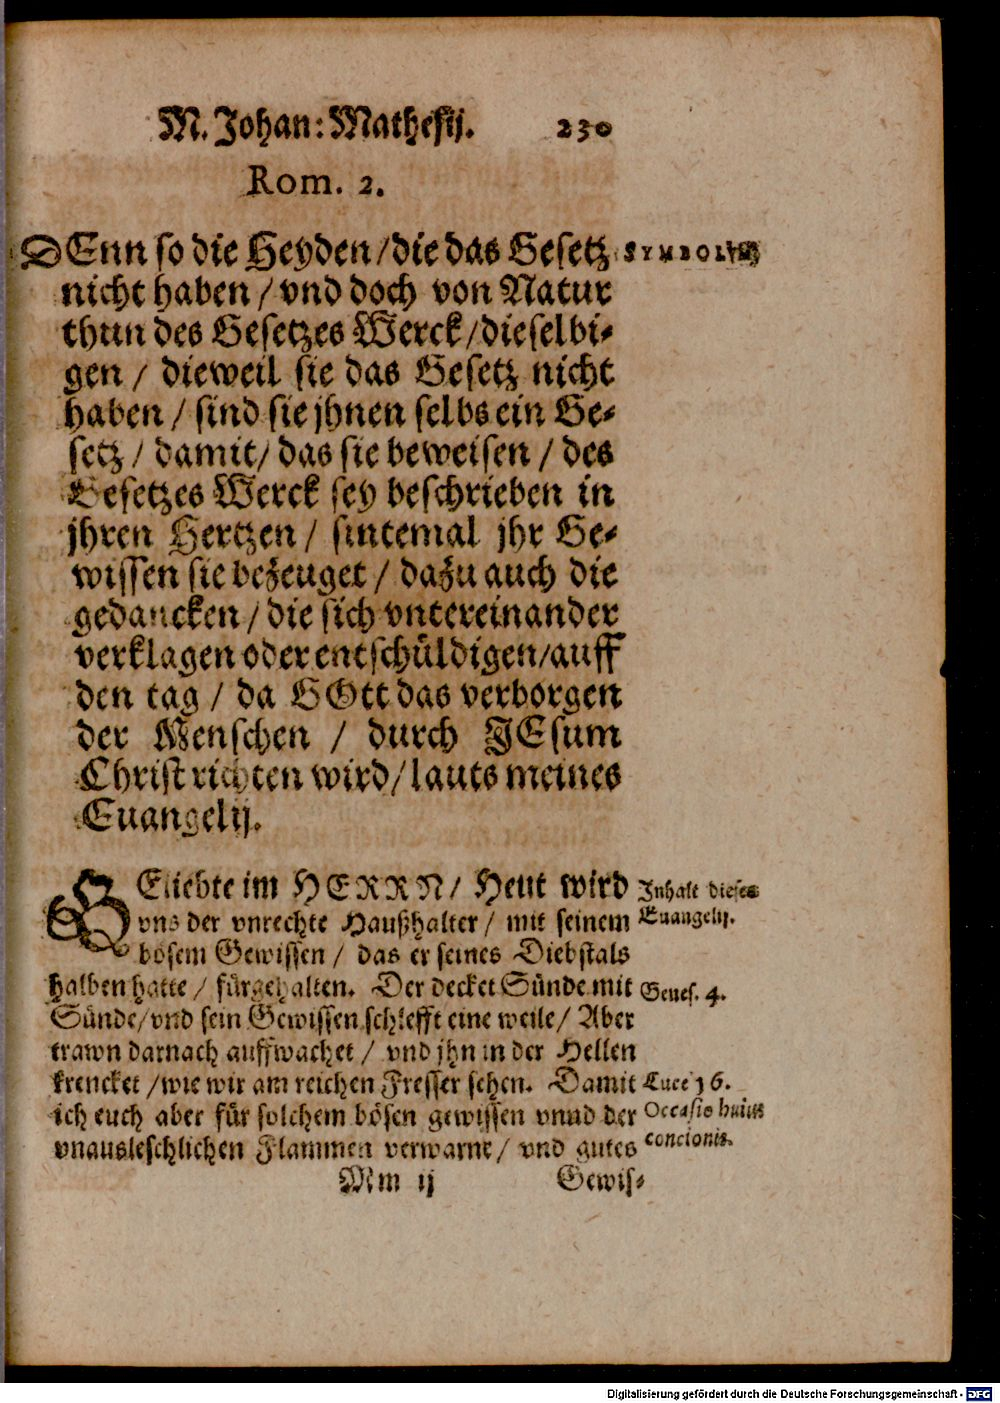 M. Johan: Mathesij. 230
Rom. 2.
DEnn so die Heyden / die das Gesetz
SYMBOLVM
nicht haben / vnd doch von Natur
thun des Gesetzes Werck / dieselbi-
gen / dieweil sie das Gesetz nicht
haben / sind sie jhnen selbs ein Ge-
setz / damit / das sie beweisen / des
Gesetzes Werck sey beschrieben in
jhren Hertzen / sintemal jhr Ge-
wissen sie bezeuget / dazu auch die
gedancken / die sich vntereinander
verklagen oder entschüldigen / auff
den tag / da GOtt das verborgen
der Menschen / durch JEsum
Christ richten wird / lauts meines
Euangelij.
GEliebte im HERRN / Heut wird
Inhalt dieses
vns der vnrechte Haußhalter / mit seinem
Euangelij.
bösem Gewissen / das er seines Diebstals
halben hatte / fürgehalten. Der decket Sünde mit
Genes. 4.
Sünde / vnd sein Gewissen schlefft eine weile / Aber
trawn darnach auffwachet / vnd jhn in der Hellen
krencket / wie wir am reichen Fresser sehen. Damit
Luce 16.
ich euch aber für solchem bösen gewissen vnnd der
Occasio huius
vnausleschlichen Flammen verwarne / vnd gutes
concionis.
Mm ij Gewis-
Digitalisierung gefördert durch die Deutsche Forschungsgemeinschaft - DFG